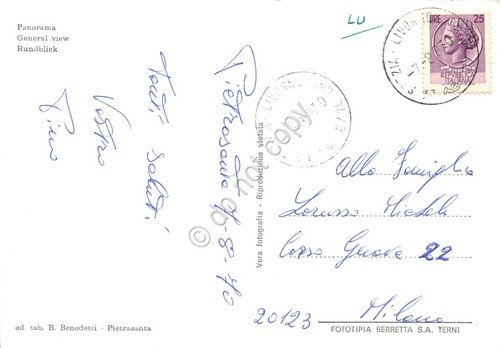 Panorama
General view
Rundblick
LU
LIRE 25
ITALIANA
Pietrasanta 11-8-70
Tanti saluti
Vostro
Pino
Alla Famiglia
Lorusso Michele
Corso Genova 22
20123 Milano
Vera fotografia - Riproduzione vietata
do not copy
ed. tab. B. Benedetti - Pietrasanta
FOTOTIPIA BERRETTA S.A. TERNI